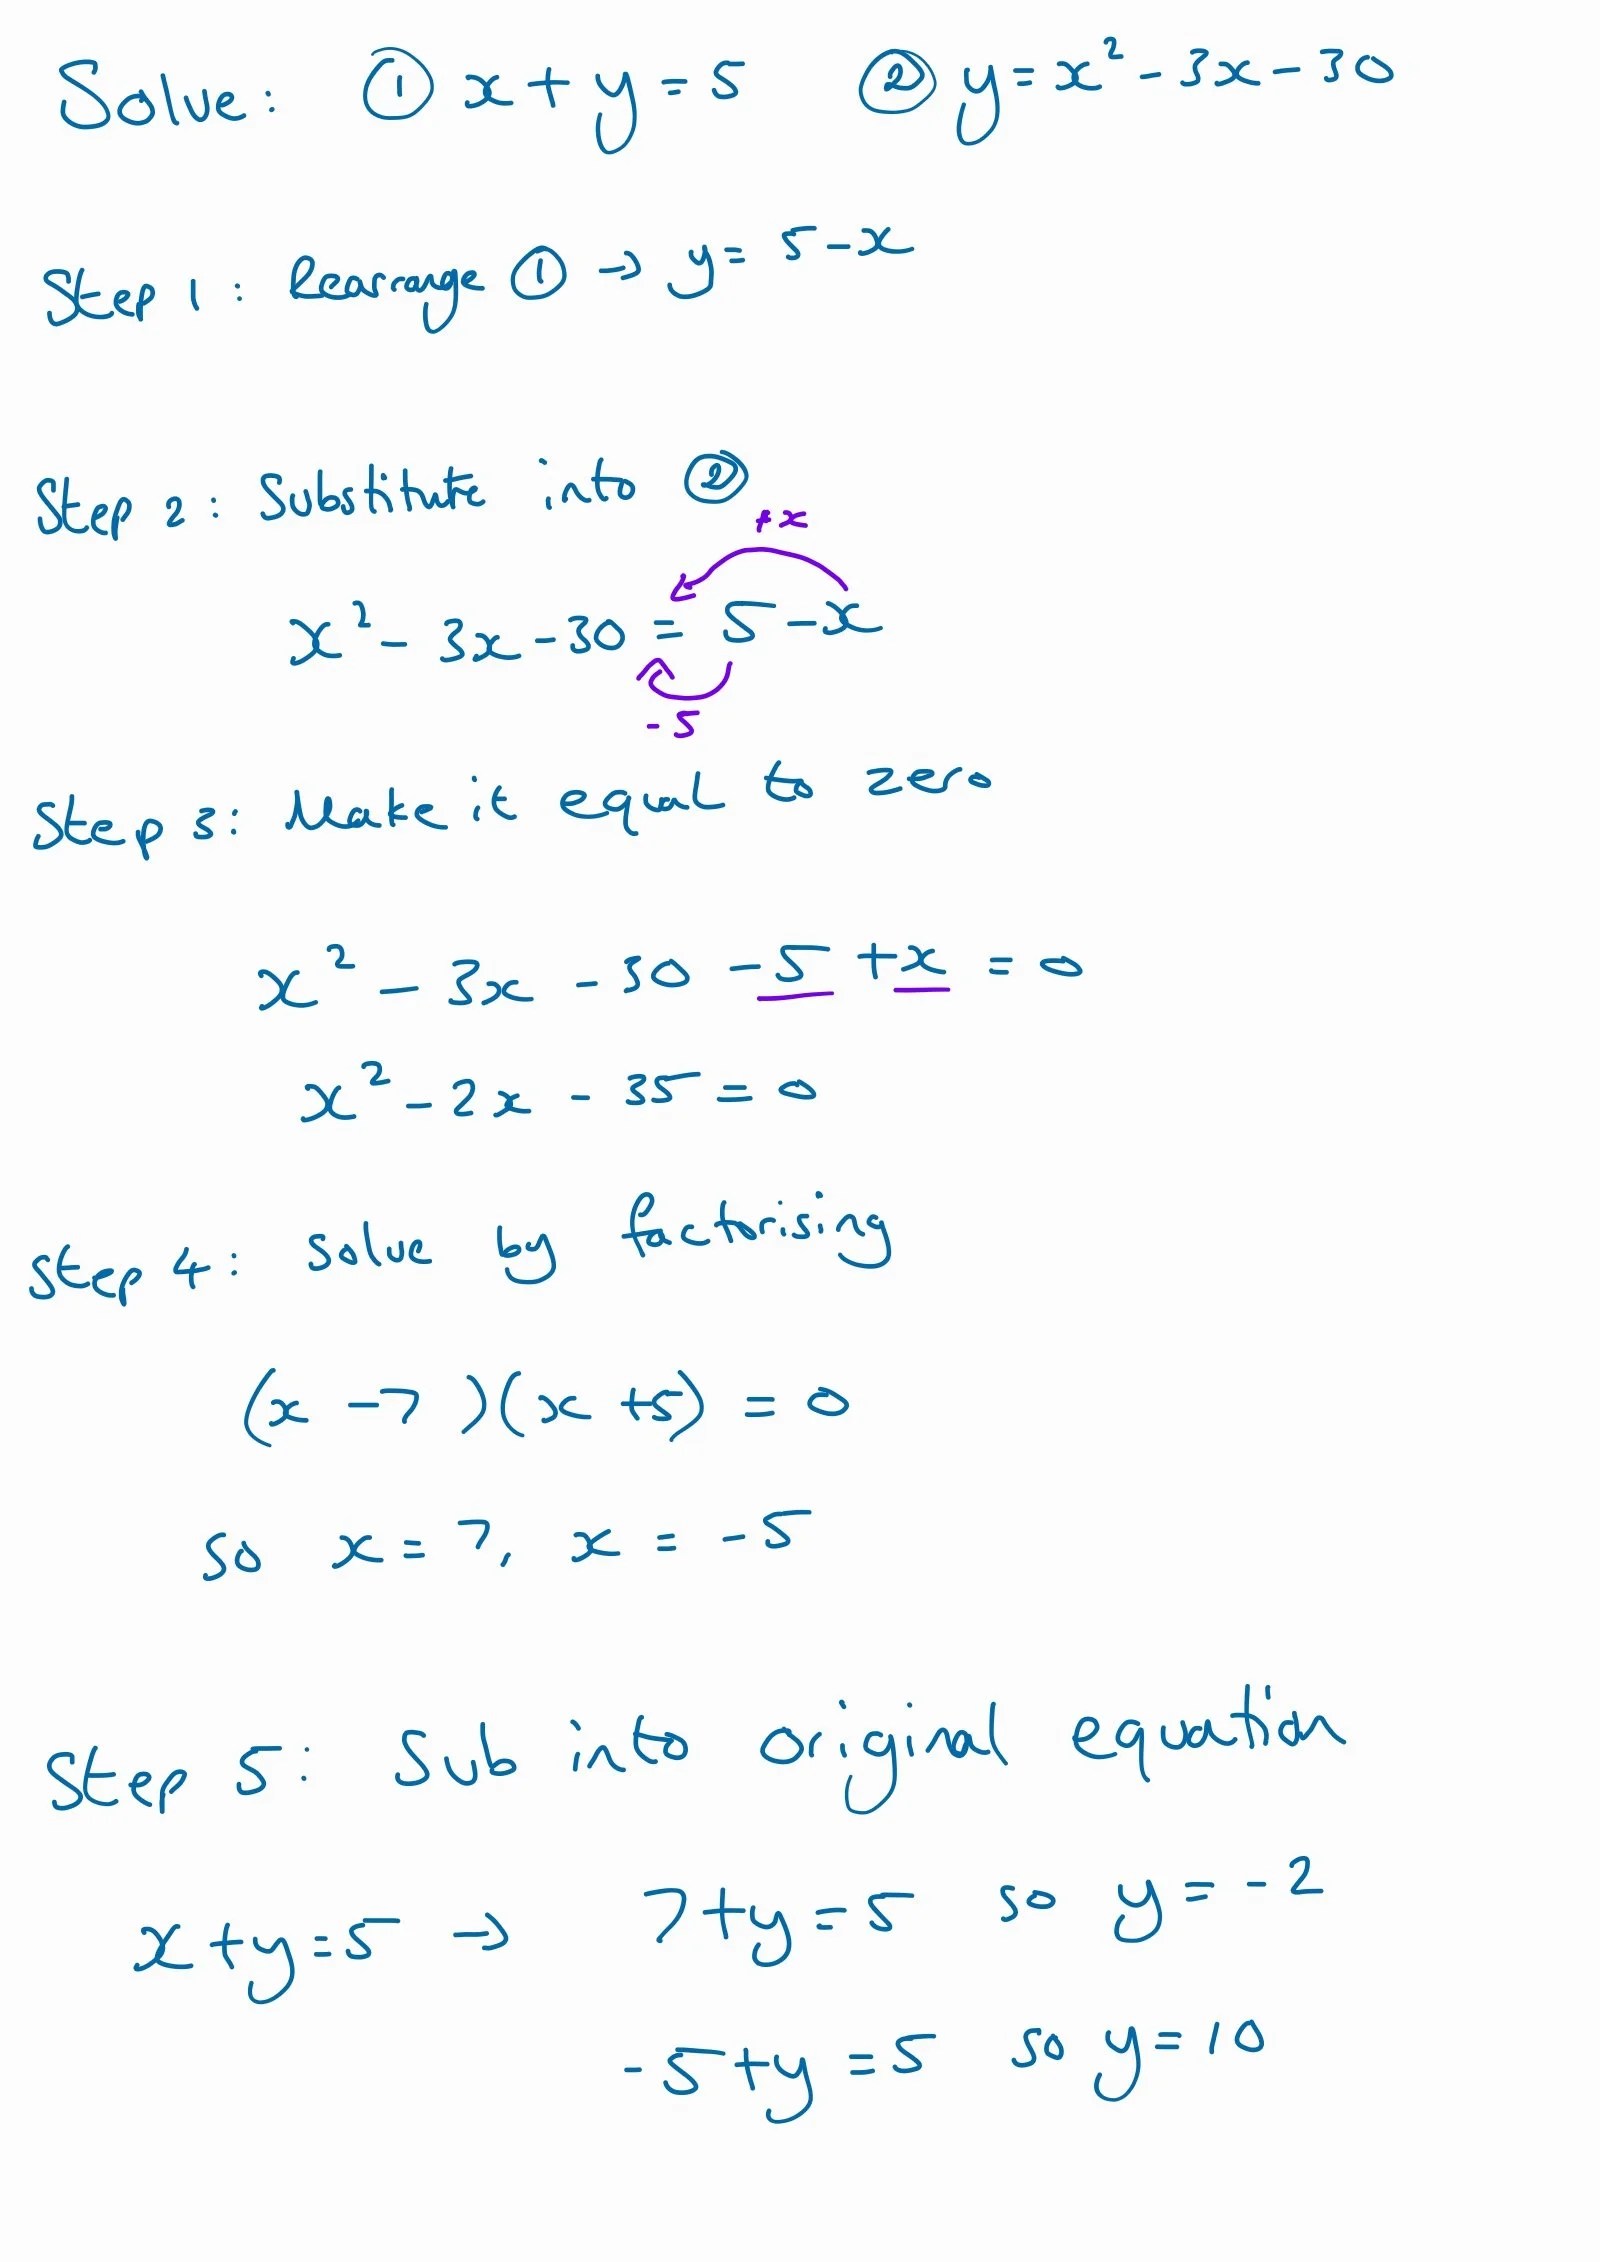 Solve: ① x + y = 5 ② y = x² - 3x - 30
Step 1: Rearrange ① → y = 5 - x
Step 2: Substitute into ②
+x
x² - 3x - 30 = 5 - x
-5
Step 3: Make it equal to zero
x² - 3x - 30 - 5 + x = 0
x² - 2x - 35 = 0
Step 4: Solve by factorising
(x - 7)(x + 5) = 0
so x = 7, x = -5
Step 5: Sub into original equation
x + y = 5 → 7 + y = 5 so y = -2
-5 + y = 5 so y = 10